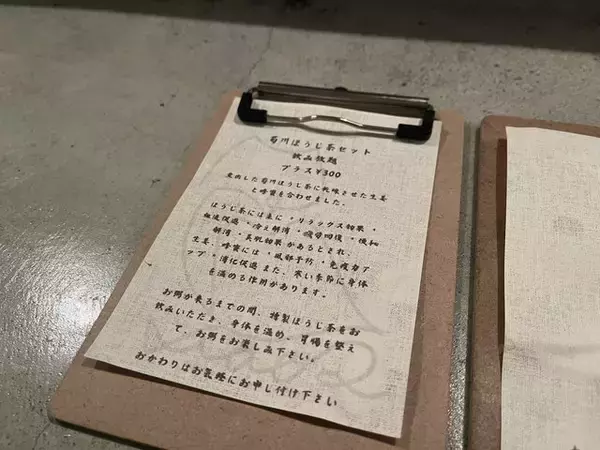 菊川ほうじ茶セット
飲み放題
プラス¥300
煮出した菊川ほうじ茶に乾燥させた生姜
と蜂蜜を合わせました。
ほうじ茶には主に・リラックス効果・
血流促進・冷え解消・疲労回復・便秘
解消・美肌効果があるとされ、
生姜、蜂蜜には・風邪予防・免疫力ア
ップ・消化促進また、寒い季節に身体
を温める作用があります。
お粥が来るまでの間、特製ほうじ茶をお
飲みいただき、身体を温め、胃腸を整え
て、お粥をお楽しみ下さい。
おかわりはお気軽にお申し付け下さい